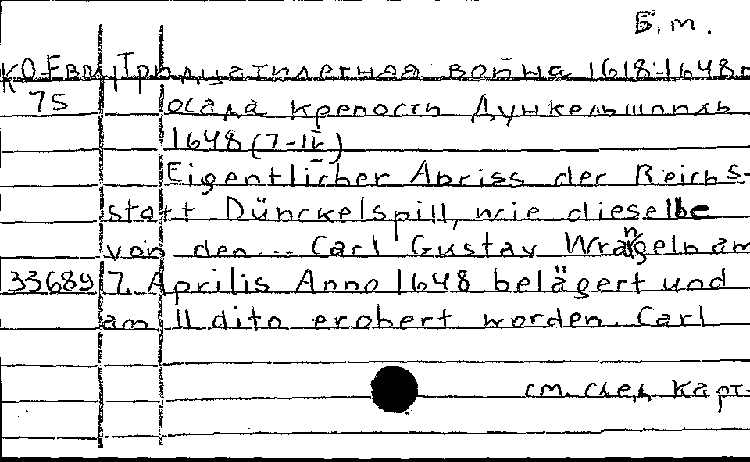 Б.т.
КО-Евр, Тридцатилетная война 1618-1648 г
75 осада крепости Дункельшпиль
1648 (7-IV)
Eigentlicher Abriss der Reichs-
statt Dünckelspill, wie dieselbe
von den... Carl Gustav Wrangeln am
33689 7. Aprilis Anno 1648 belägert und
am 11 dito erobert worden. Carl
см. след. карт.